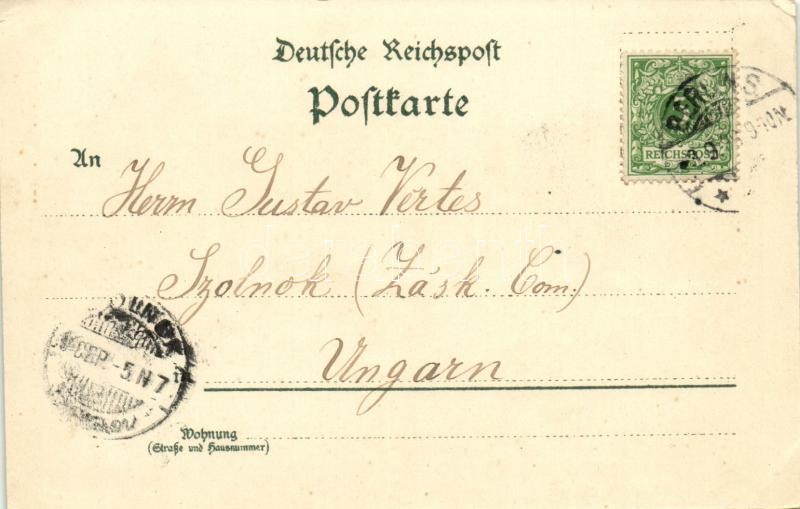 Deutsche Reichspost
Postkarte
An
Herrn Gustav Vértes
Szolnok (Zásk. Com.)
Ungarn
in
Wohnung
(Straße und Hausnummer)
REICHSPOST
BERLIN S